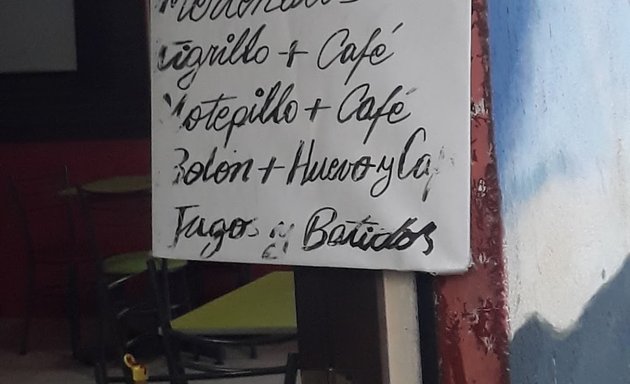 Tigrillo + Café
Motepillo + Café
Bolón + Huevo y Caf
Jugos y Batidos